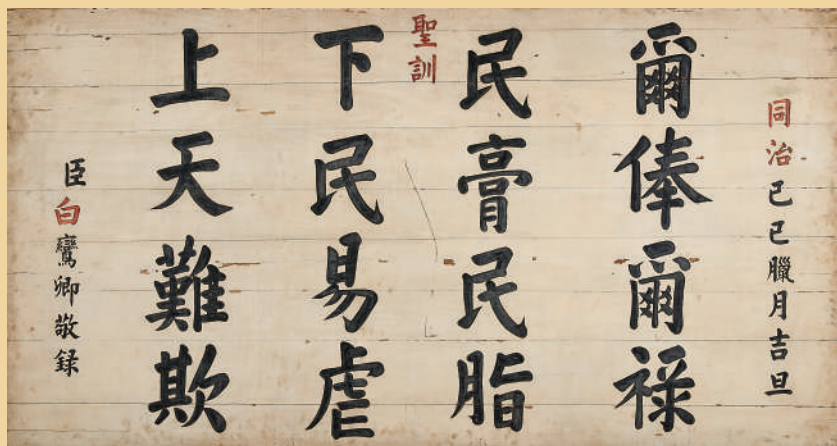 同治己巳臘月吉旦
爾俸爾祿
民膏民脂
聖訓
下民易虐
上天難欺
臣白鸞卿敬録